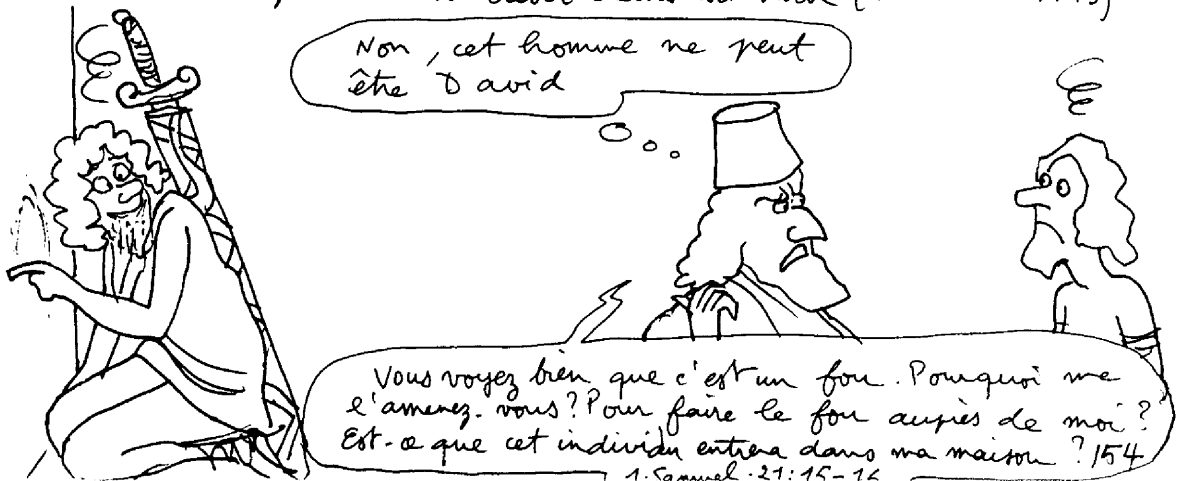 Non, cet homme ne peut
être David
Vous voyez bien que c'est un fou. Pourquoi me
l'amenez-vous? Pour faire le fou auprès de moi?
Est-ce que cet individu entrera dans ma maison? 154
1. Samuel. 21: 15-16